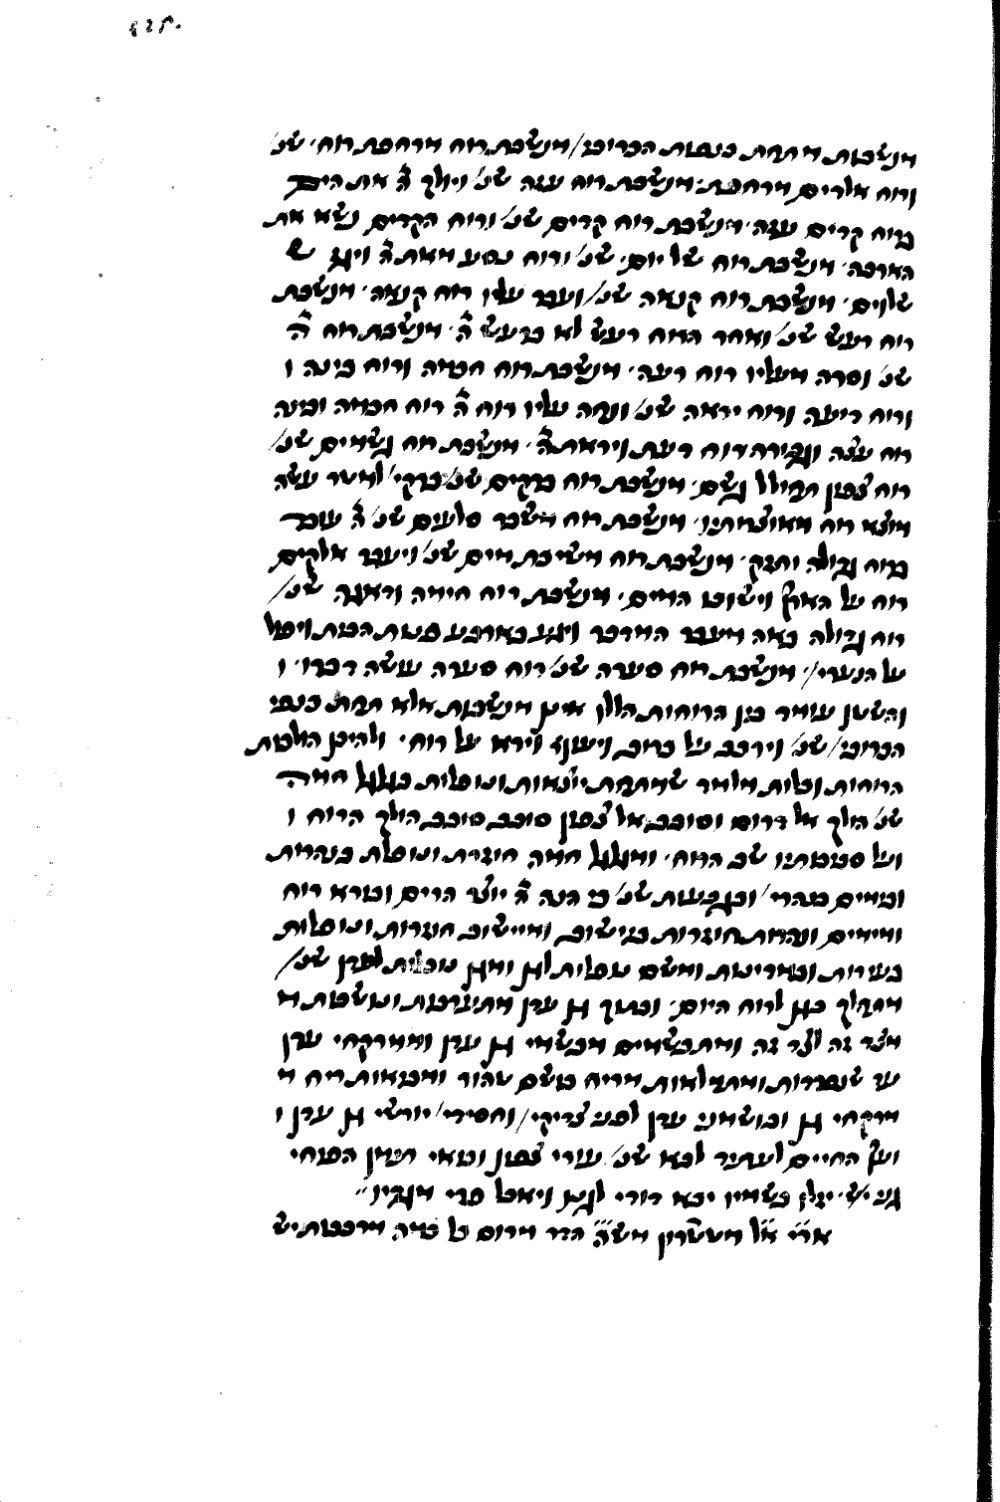 מנשבות מתחת כנפות הכרובי/ מנשבת רוח מרחפת רוח׳ שנ׳
ורוח אלדים מרחפת׳ מנשבת רוח עזה שנ׳ ויולך ה׳ את הים
ברוח קדים עזה׳ מנשבת רוח קדים שנ׳ ורוח הקדים נשא את
הארבה׳ מנשבת רוח שלוים׳ שנ׳ ורוח נסע מאת ה׳ ויגז ש
שלוים׳ מנשבת רוח קנאה שנ׳ ועבר עליו רוח קנאה׳ מנשבת
רוח רעש שנ׳ ואחר הרוח רעש לא ברעש ה׳ מנשבת רוח ה׳
שנ׳ וסרה מעליו רוח רעה׳ מנשבת רוח חכמה ורוח בינה ו
ורוח דיעה ורוח יראה שנ׳ ונחה עליו רוח ה׳ רוח חכמה ובינה
רוח עצה וגבורה רוח דעת ויראת ה׳ מנשבת רוח גשמים שנ׳
רוח צפון תחולל גשם׳ מנשבת רוח ברקים שנ׳ ברקי׳ למטר עשה
מוצא רוח מאוצרותיו׳ מנשבת רוח משבר סלעים שנ׳ ה׳ עובר
ברוח גדולה וחזק׳ מנשבת רוח משיבת מים שנ׳ ויעבר אלקים
רוח על הארץ וישוכו המים׳ מנשבת רוח חימה ודאגה שנ׳
רוח גדולה באה מעבר המדבר ויגע בארבע פנות הבית ויפול
על הנערי/׳ מנשבת רוח סערה שנ׳ רוח סערה עושה דברו׳ ו
והשטן עומד בין הרוחות הללו אינן מנשבות אלא תחת כנפי
הכרובי/ שנ׳ וירכב על כרוב ויעוף וידא על רוח׳ ולהיכן הולכות
הרוחות וכלות מלמד שמתחת יוצאות ונופלות בגלגל חמה
שנ׳ הולך אל דרום וסובב אל צפון סובב סובב הולך הרוח ו
ועל סביבותיו שב הרוח׳ ומגלגל חמה חוזרת ונופלת בנהרות
ובימים בהרי׳ ובגבעות שנ׳ כי הנה ה׳ יוצר הרים ובורא רוח
ומימים ונהרות חוזרות בישוב ומיישוב חוזרות ונופלות
בעירות ובמדינות ומשם נופלות לגן ומגן נופלות לעדן שנ׳
מתהלך בגן לרוח היום׳ ובתוך גן עדן מתערבות ונושבות מ
מצד זה לצד זה ומתבשמים מבשמי גן עדן וממרקחי עדן
עד שנפרדות ומתמלאות מריח בושם טהור ומביאות ריח מ
מרקחי גן ובושמני עדן לפני צדיקי׳ וחסידי׳ יורשי גן עדן ו
ועץ החיים לעתיד לבא שנ׳ עורי צפון ובואי תימן הפיחי
גני יש׳ יזלו בשמיו יבא דודי לגנו ויאכל פרי מגדיו׳׳
א״ר יא״ל מטטרון מש״ה הדר מרום ט׳ כמה מרכבות יש